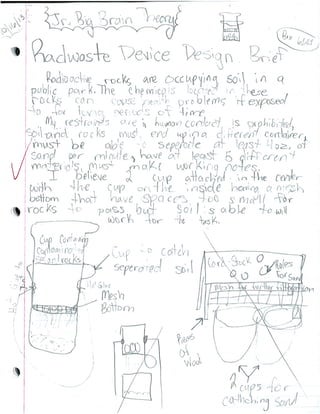 Jr. Big Brain Theory
Radwaste Device Design Brief
Radioactive rocks are occupying soil in a
public park. The chemicals located in these
rocks can cause health problems if exposed
to for long periods of time
My restraints are: human contact is prohibited,
soil and rocks must end up in a different container,
must be able to seperate at least 4oz. of
sand per minute, have at least 5 different
materials, must make working notes.
I believe 2 cup attached in the center
with the cup on the inside having a mesh
bottom that have spaces too small for
rocks to pass but soil is able to will
work for the task.
Cup Containing
soil and rocks
Cup to catch
seperated soil
Mesh
Bottom
Card Stock
Holes
for sand
Mesh for better filtration
Pieces
of
Wood
2 cups for
catching sand